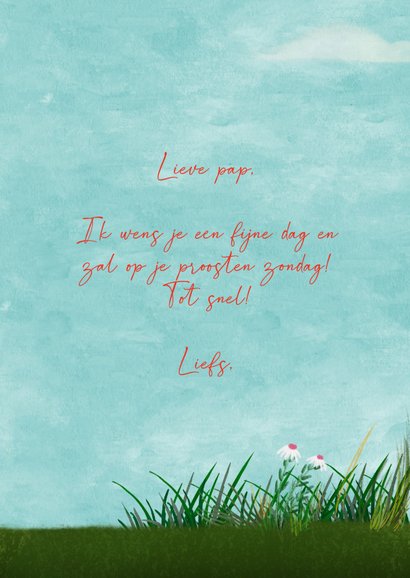 Lieve pap,
Ik wens je een fijne dag en
zal op je proosten zondag!
Tot snel!
Liefs,